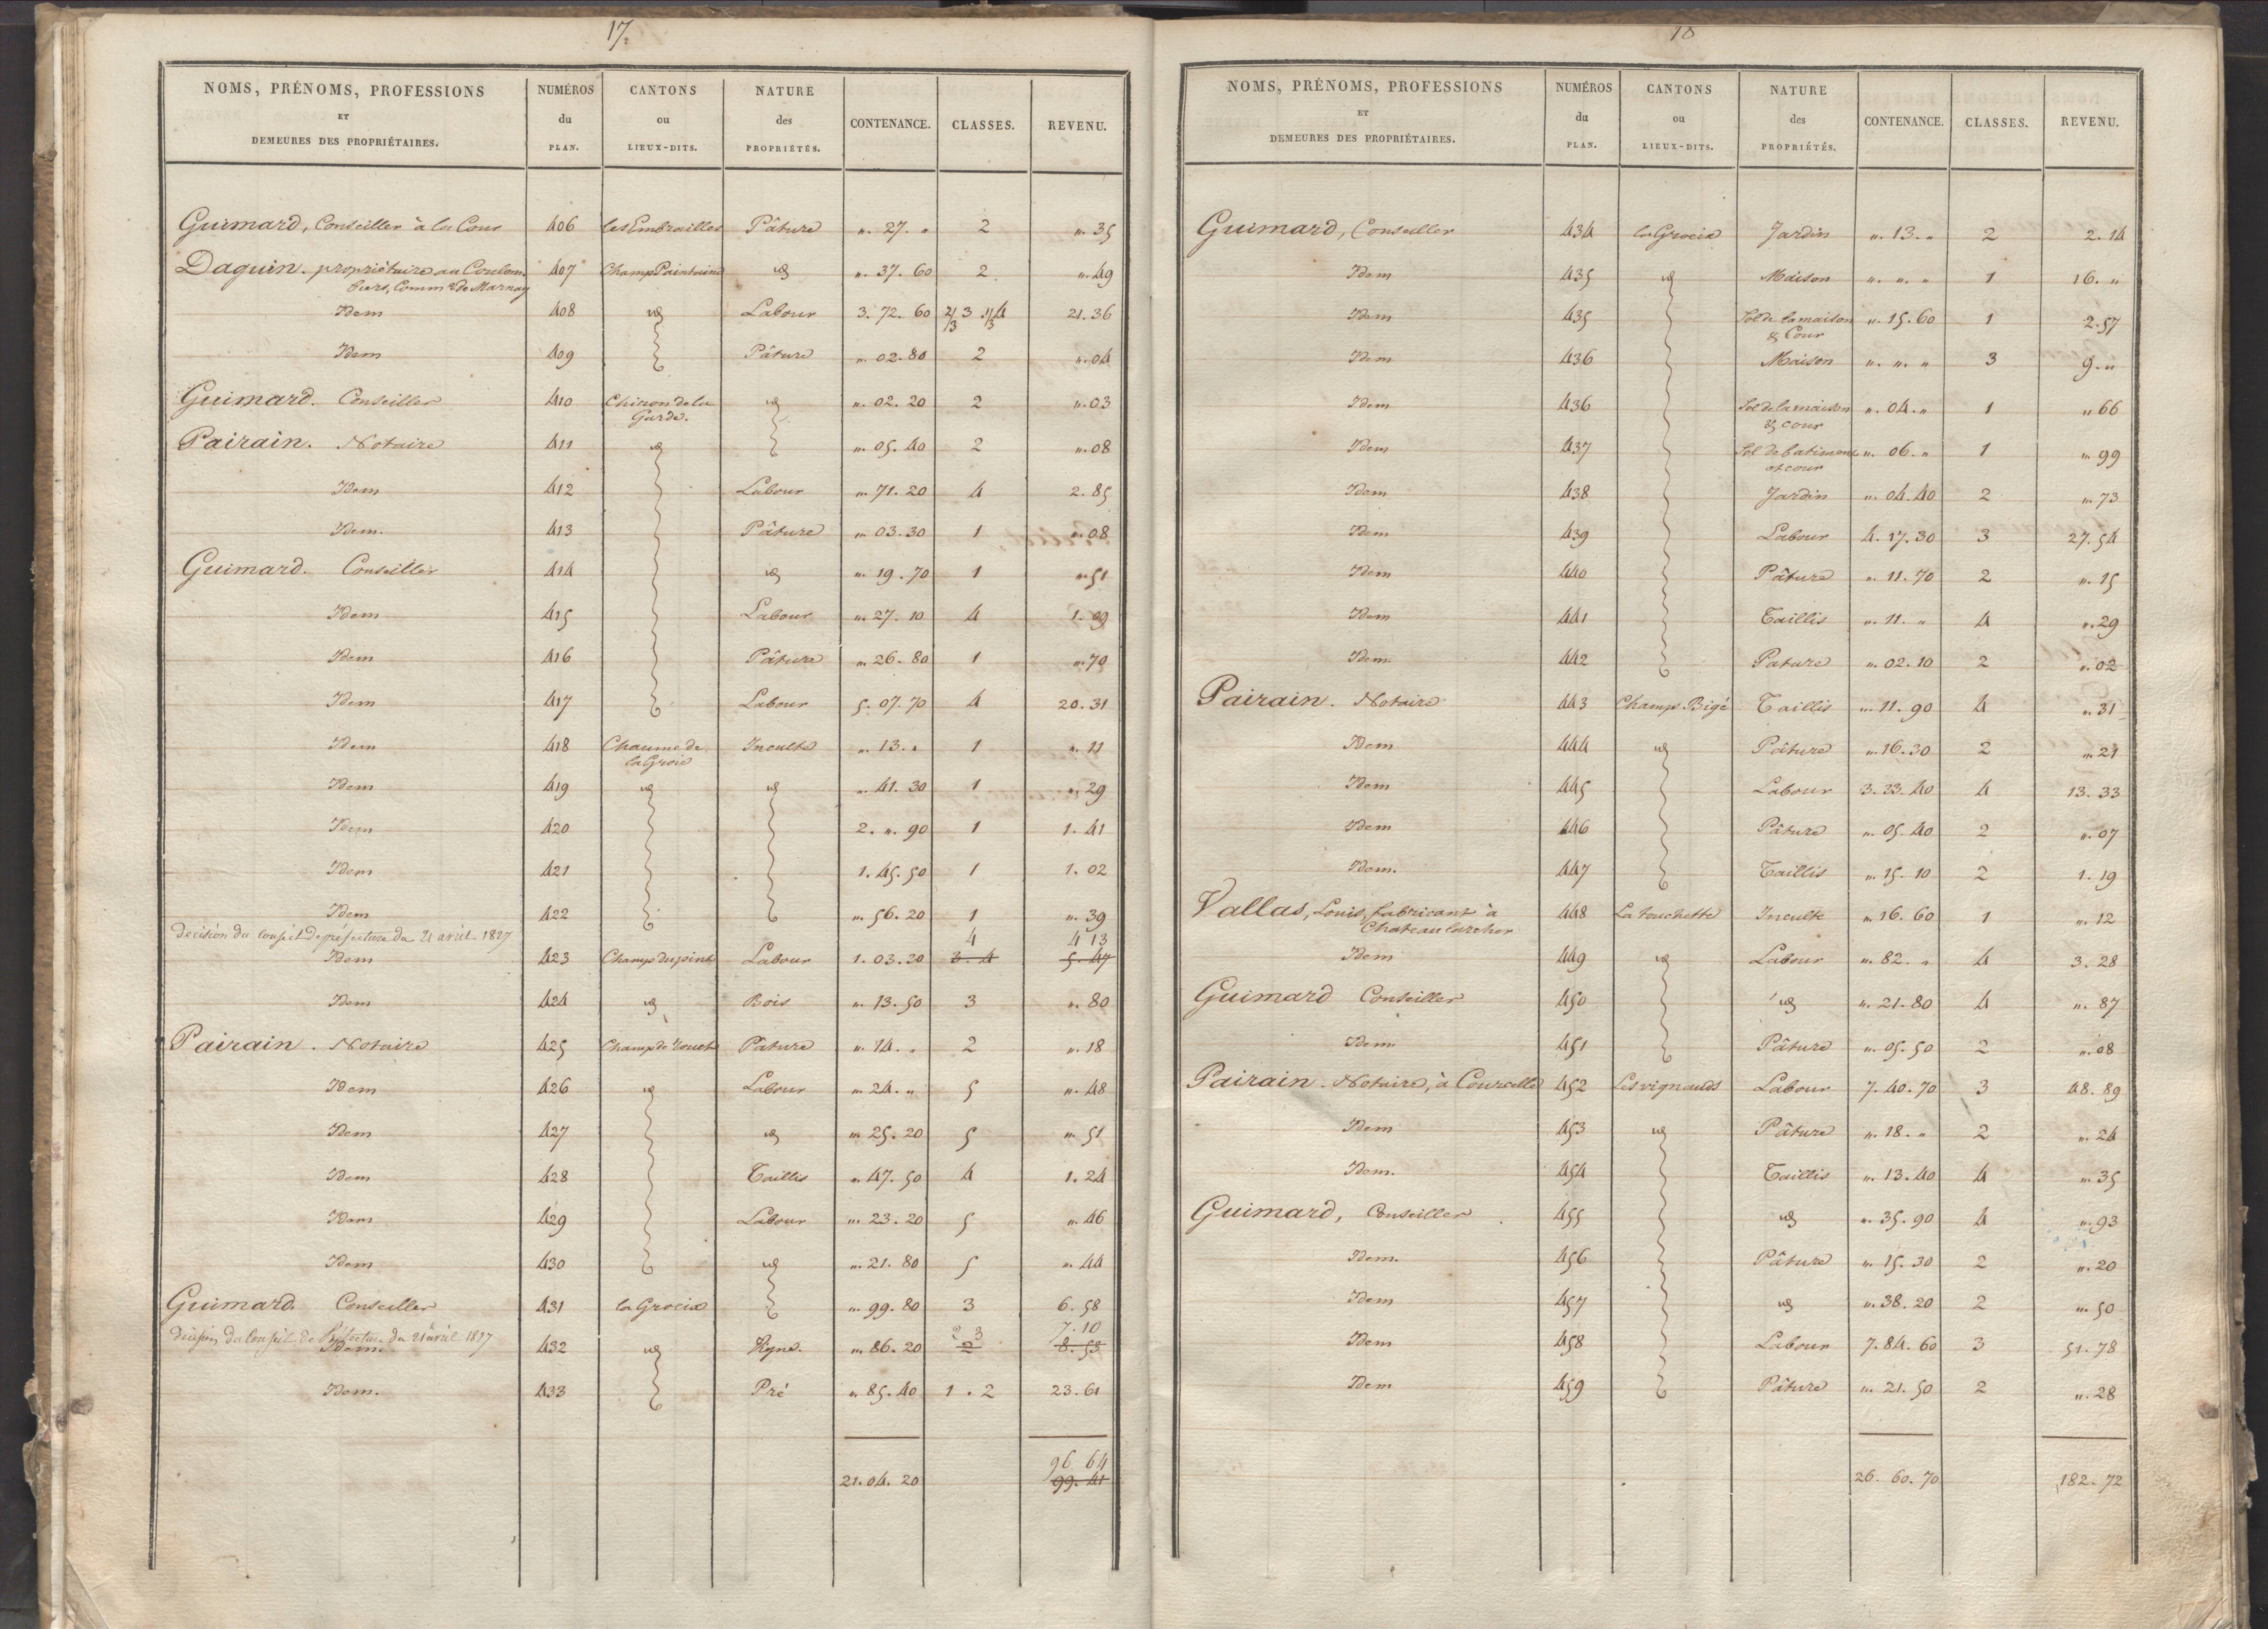 17.
NOMS, PRÉNOMS, PROFESSIONS ET DEMEURES DES PROPRIÉTAIRES. | NUMÉROS du PLAN. | CANTONS ou LIEUX-DITS. | NATURE des PROPRIÉTÉS. | CONTENANCE. | CLASSES. | REVENU.
Guimard, Conseiller à la Cour 406 les Embrailles Pâture ". 27. " 2 ". 35
Daguin. propriétaire au Coulom- 407 Champ Paintaine id ". 37. 60 2 ". 49
biers, Comm.ne de Marnay
Idem 408 id Labour 3. 72. 60 2/3 3 1/3 4 21. 36
Idem 409 Pâture ". 02. 80 2 ". 04
Guimard. Conseiller 410 Chiron de la id ". 02. 20 2 ". 03
Garde.
Pairain. Notaire 411 id ". 05. 40 2 ". 08
Idem 412 Labour ". 71. 20 4 2. 85
Idem. 413 Pâture ". 03. 30 1 ". 08
Guimard. Conseiller 414 id ". 19. 70 1 ". 51
Idem 415 Labour ". 27. 10 4 1. 09
Idem 416 Pâture ". 26. 80 1 ". 70
Idem 417 Labour 5. 07. 70 4 20. 31
Idem 418 Chaume de Inculte ". 13. " 1 ". 11
la Groie
Idem 419 id id ". 41. 30 1 ". 29
Idem 420 2. ". 90 1 1. 41
Idem 421 1. 45. 50 1 1. 02
Idem 422 ". 56. 20 1 ". 39
décision du conseil de préfecture du 21 avril 1827 4 4 13
Idem 423 Champ du pin Labour 1. 03. 20 3. 4 5. 47
Idem 424 id Bois ". 13. 50 3 ". 80
Pairain. Notaire 425 Champ de Pature ". 14. " 2 ". 18
Idem 426 id Labour ". 24. " 5 ". 48
Idem 427 id ". 25. 20 5 ". 51
Idem 428 Taillis ". 47. 50 4 1. 24
Idem 429 Labour ". 23. 20 5 ". 46
Idem 430 id ". 21. 80 5 ". 44
Guimard. Conseiller 431 la Groeix ". 99. 80 3 6. 58
décision du Conseil de Préfecture du 21 avril 1827 3 7. 10
Idem. 432 id ". 86. 20 2 8. 53
Idem. 433 Pré ". 85. 40 1. 2 23. 61
96 64
21. 04. 20 99. 41
18
NOMS, PRÉNOMS, PROFESSIONS ET DEMEURES DES PROPRIÉTAIRES. | NUMÉROS du PLAN. | CANTONS ou LIEUX-DITS. | NATURE des PROPRIÉTÉS. | CONTENANCE. | CLASSES. | REVENU.
Guimard, Conseiller 434 la Groeix Jardin ". 13. " 2 2. 14
Idem 435 id Maison ". ". " 1 16. "
Idem 435 Sol de la maison ". 15. 60 1 2. 57
& Cour
Idem 436 Maison ". ". " 3 9. "
Idem 436 Sol de la maison ". 04. " 1 " 66
& cour
Idem 437 Sol de batiment ". 06. " 1 ". 99
et cour
Idem 438 Jardin ". 04. 40 2 ". 73
Idem 439 Labour 4. 17. 30 3 27. 54
Idem 440 Pâture ". 11. 70 2 ". 15
Idem 441 Taillis ". 11. " 4 ". 29
Idem 442 Pature ". 02. 10 2 ". 02
Pairain. Notaire 443 Champs Bigé Taillis ". 11. 90 4 ". 31
Idem 444 id Pâture ". 16. 30 2 ". 21
Idem 445 Labour 3. 33. 40 4 13. 33
Idem 446 Pâture ". 05. 40 2 ". 07
Idem. 447 Taillis ". 15. 10 2 1. 19
Vallas, Louis, fabricant à 448 La touchette Inculte ". 16. 60 1 ". 12
Chateau larcher
Idem 449 id Labour ". 82. " 4 3. 28
Guimard Conseiller 450 id ". 21. 80 4 ". 87
Idem 451 Pâture ". 05. 50 2 ". 08
Pairain. Notaire, à Courcelle 452 Les vignauds Labour 7. 40. 70 3 48. 89
Idem 453 id Pâture ". 18. " 2 ". 24
Idem. 454 Taillis ". 13. 40 4 ". 35
Guimard, Conseiller 455 id ". 35. 90 4 ". 93
Idem. 456 Pâture ". 15. 30 2 ". 20
Idem 457 id ". 38. 20 2 ". 50
Idem 458 Labour 7. 84. 60 3 51. 78
Idem 459 Pâture ". 21. 50 2 ". 28
26. 60. 70 182. 72